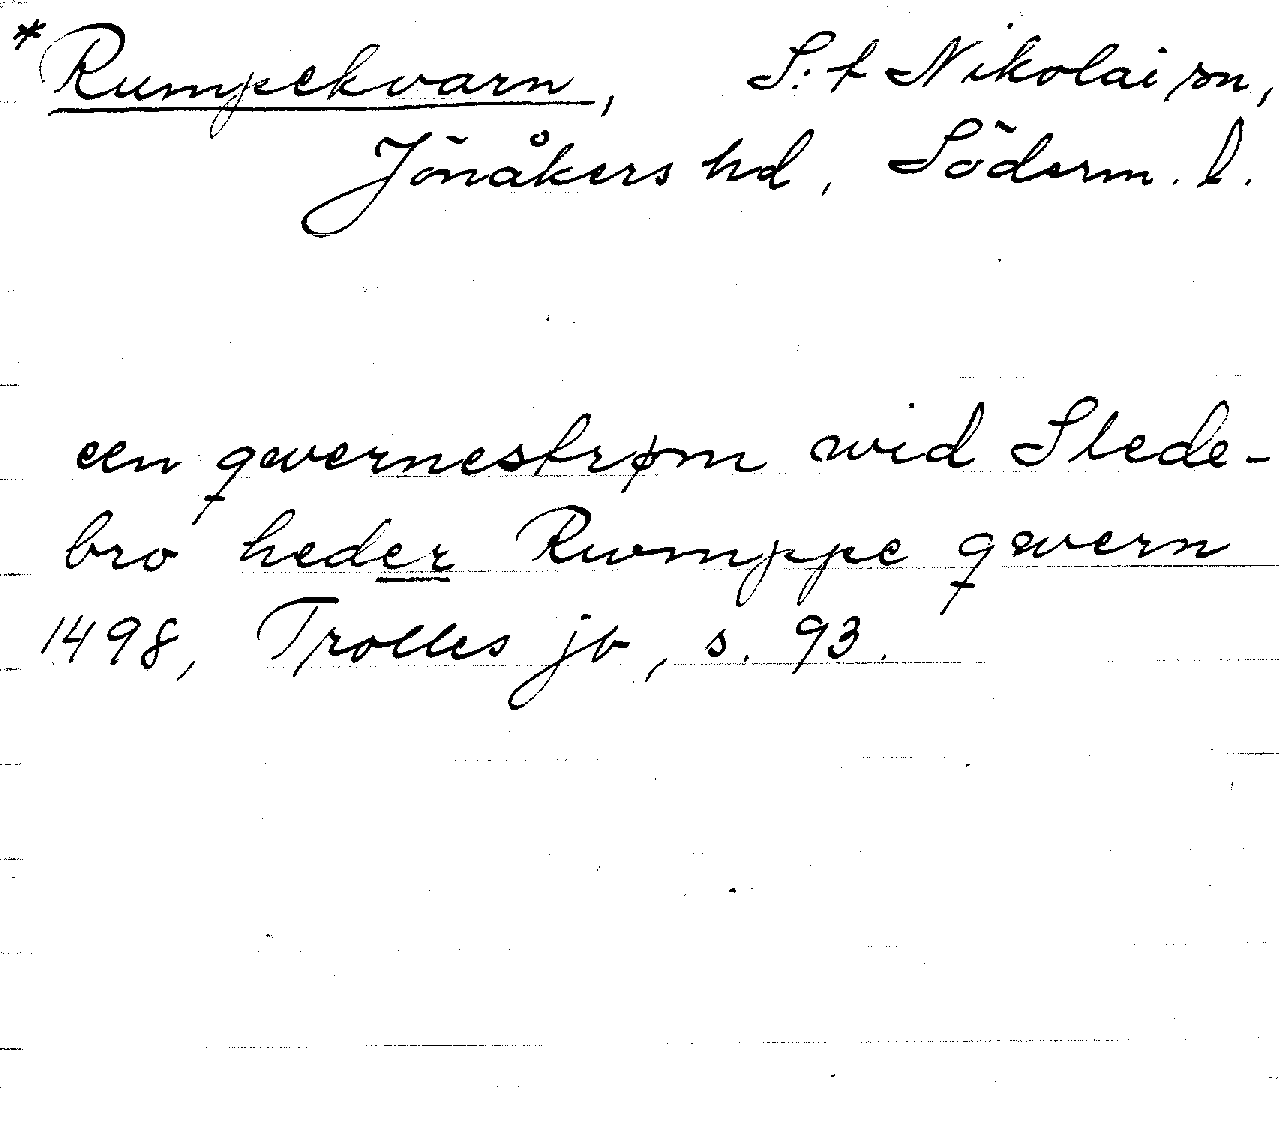 *Rumpekvarn, S:t Nikolai sn,
Jönåkers hd, Söderm. l.
een qwernestrøm wid Slede-
bro heder Rwmppe qwern
1498, Trolles jb, s. 93.